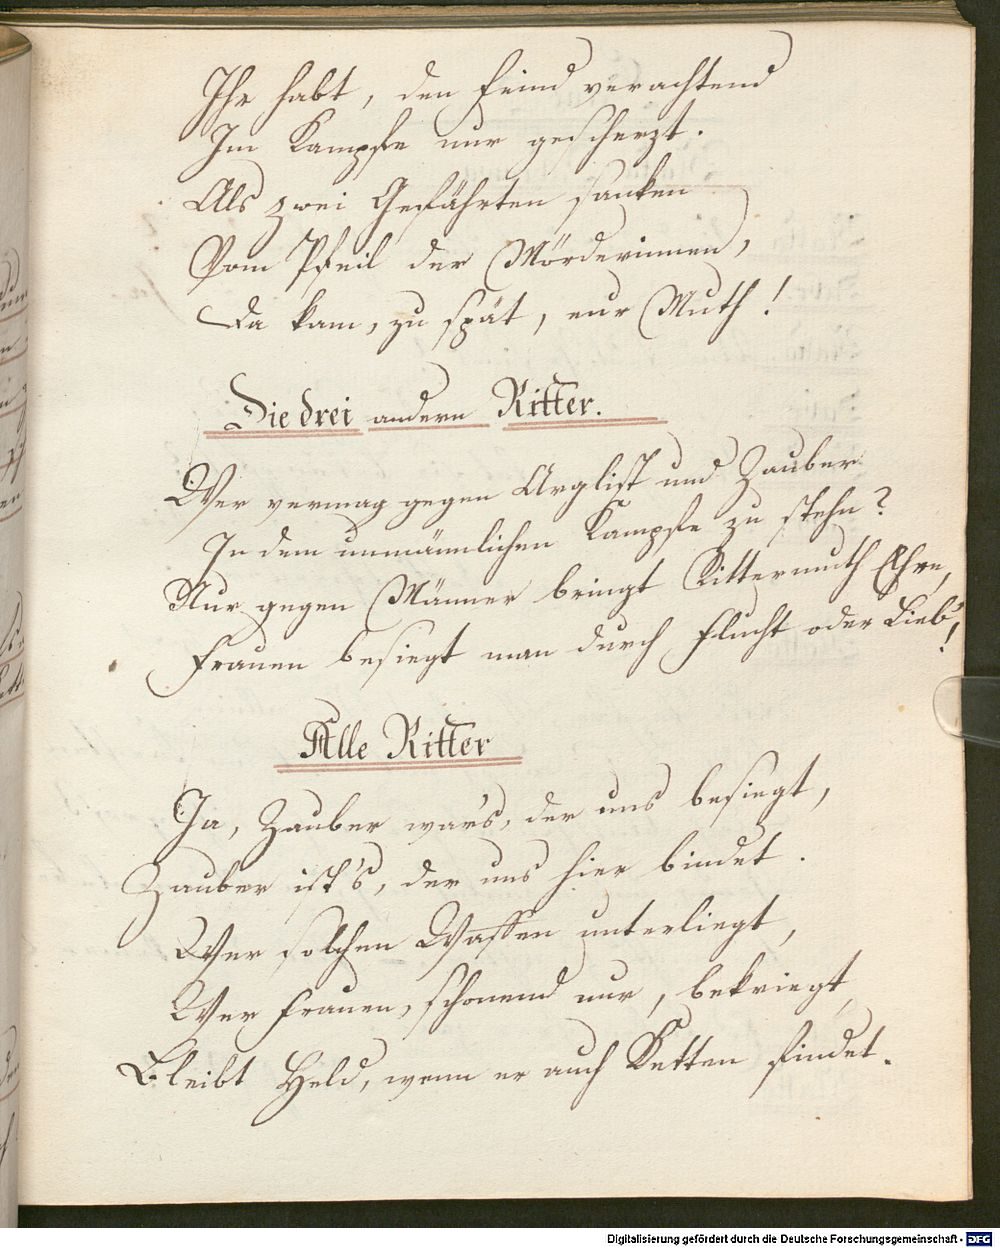 Ihr habt, den Feind verachtend
Im Kampfe nur gescherzt.
Als zwei Gefährten sanken
Vom Pfeil der Mörderinnen,
Da kam, zu spät, eur Muth!
Die drei andern Ritter.
Wer vermag gegen Arglist und Zauber
In dem unmännlichen Kampfe zu stehn?
Nur gegen Männer bringt Rittermuth Ehre,
Frauen besiegt man durch Flucht oder Lieb'!
Alle Ritter
Ja, Zauber war's, der uns besiegt,
Zauber ist's, der uns hier bindet.
Wer solchen Waffen unterliegt,
Wer Frauen, schonend nur, bekriegt,
Bleibt Held, wenn er auch Ketten findet.
Digitalisierung gefördert durch die Deutsche Forschungsgemeinschaft - DFG